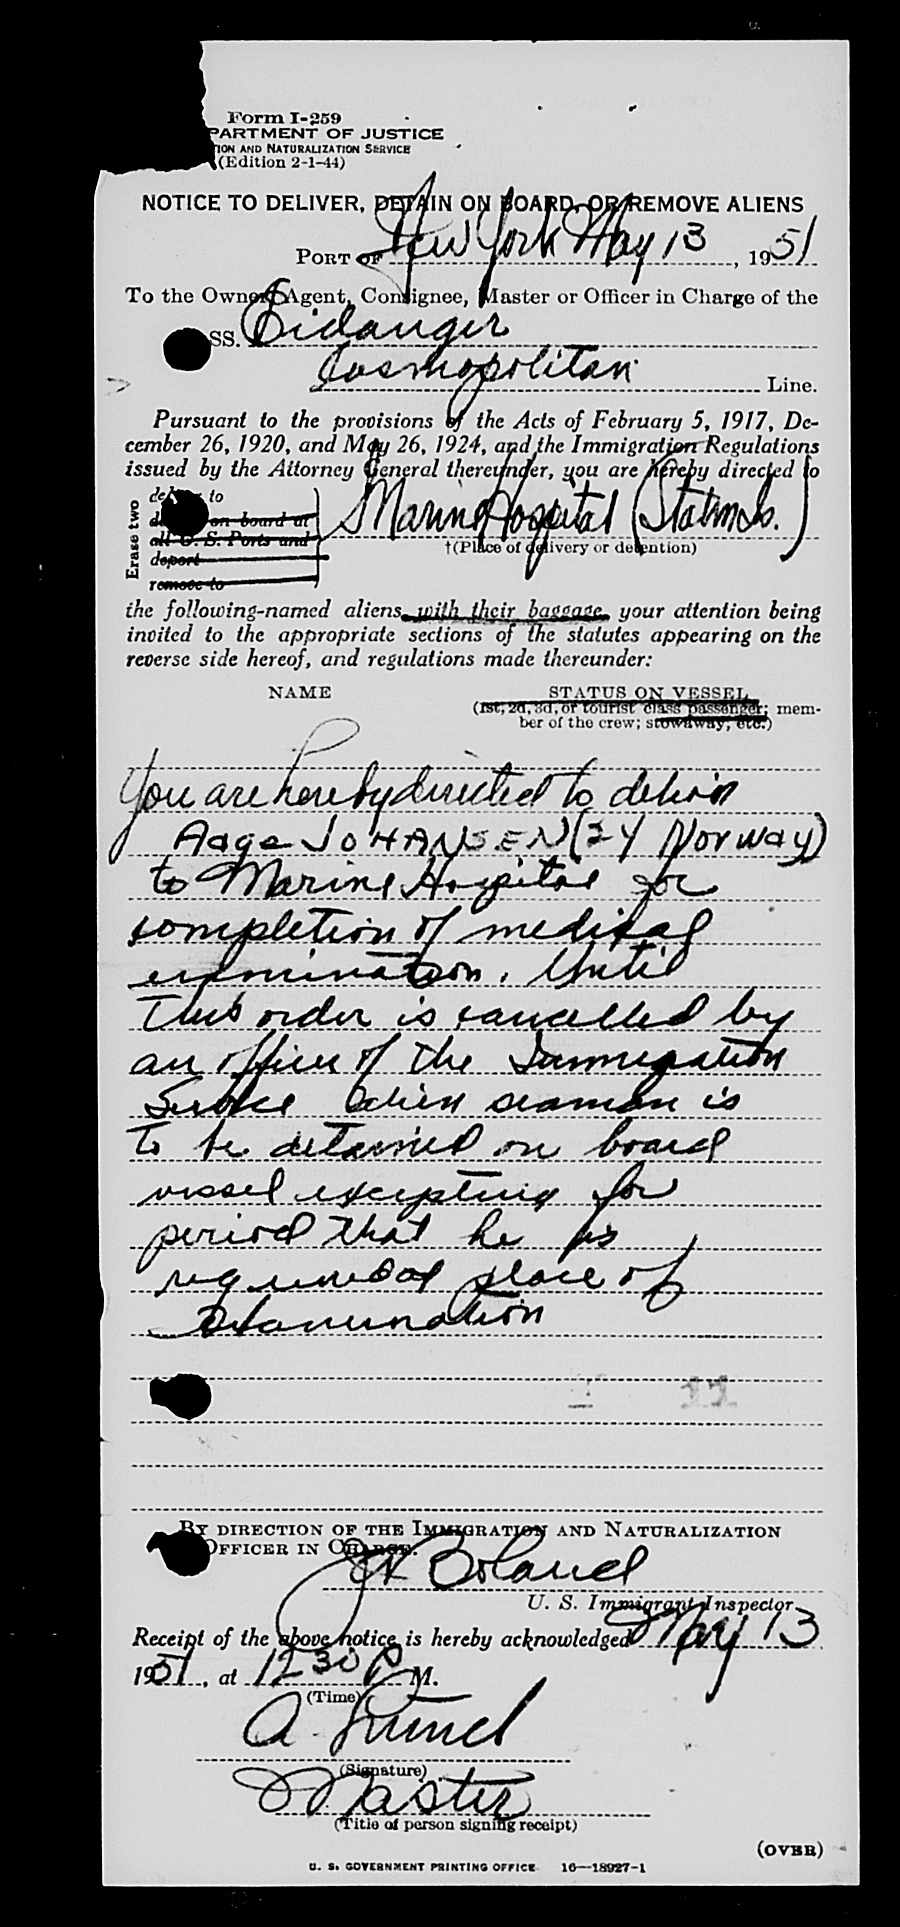 Form I-259
PARTMENT OF JUSTICE
TION AND NATURALIZATION SERVICE
(Edition 2-1-44)
NOTICE TO DELIVER, DETAIN ON BOARD, OR REMOVE ALIENS
PORT OF New York May 13, 1951
To the Owner, Agent, Consignee, Master or Officer in Charge of the
SS. Eidanger
Cosmopolitan Line.
Pursuant to the provisions of the Acts of February 5, 1917, De-
cember 26, 1920, and May 26, 1924, and the Immigration Regulations
issued by the Attorney General thereunder, you are hereby directed to
Erase two
deliver to
on board at
all U. S. Ports and
deport
remove to
Marine Hospital
†(Place of delivery or detention)
the following-named aliens with their baggage, your attention being
invited to the appropriate sections of the statutes appearing on the
reverse side hereof, and regulations made thereunder:
NAME STATUS ON VESSEL
(1st, 2d, 3d, or tourist class passenger; mem-
ber of the crew; stowaway, etc.)
You are hereby directed to deliver
Aage JOHANSEN (24 Norway)
to Marine Hospital for
completion of medical
examination. Until
this order is cancelled by
an officer of the Immigration
Service alien seaman is
to be detained on board
vessel excepting for
period that he is
required at place of
examination
11
BY DIRECTION OF THE IMMIGRATION AND NATURALIZATION
OFFICER IN CHARGE.
Boland
U. S. Immigrant Inspector.
Receipt of the above notice is hereby acknowledged May 13
1951, at 12 30 P M.
(Time)
A.
(Signature)
Master
(Title of person signing receipt)
(OVER)
U. S. GOVERNMENT PRINTING OFFICE 16—18927-1